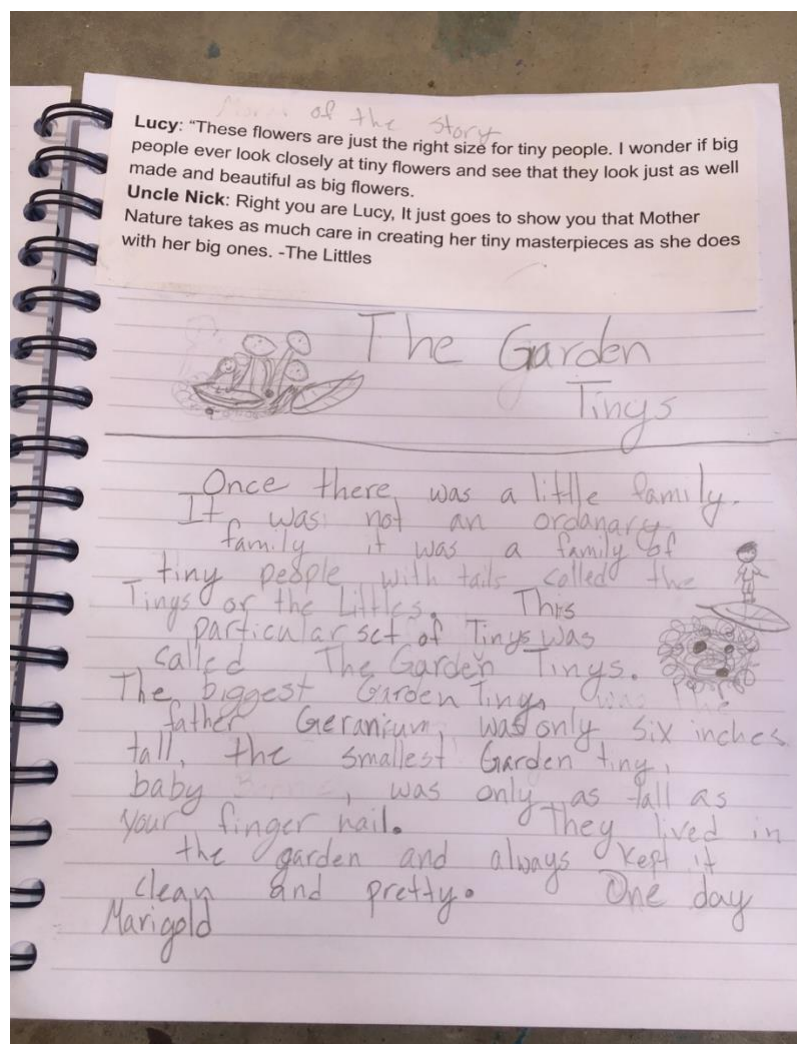 of the story
Lucy: "These flowers are just the right size for tiny people. I wonder if big
people ever look closely at tiny flowers and see that they look just as well
made and beautiful as big flowers.
Uncle Nick: Right you are Lucy, It just goes to show you that Mother
Nature takes as much care in creating her tiny masterpieces as she does
with her big ones. -The Littles
The Garden
Tinys
Once there was a little family.
It was not an ordanary
family it was a family of
tiny people with tails called the
Tings or the Littles. This
particular set of Tinys was
called The Garden Tinys.
The biggest Garden Tiny, was the
father Geranium, was only six inches
tall, the smallest Garden tiny,
baby , was only as tall as
your finger nail. They lived in
the garden and always kept it
clean and pretty. One day
Marigold